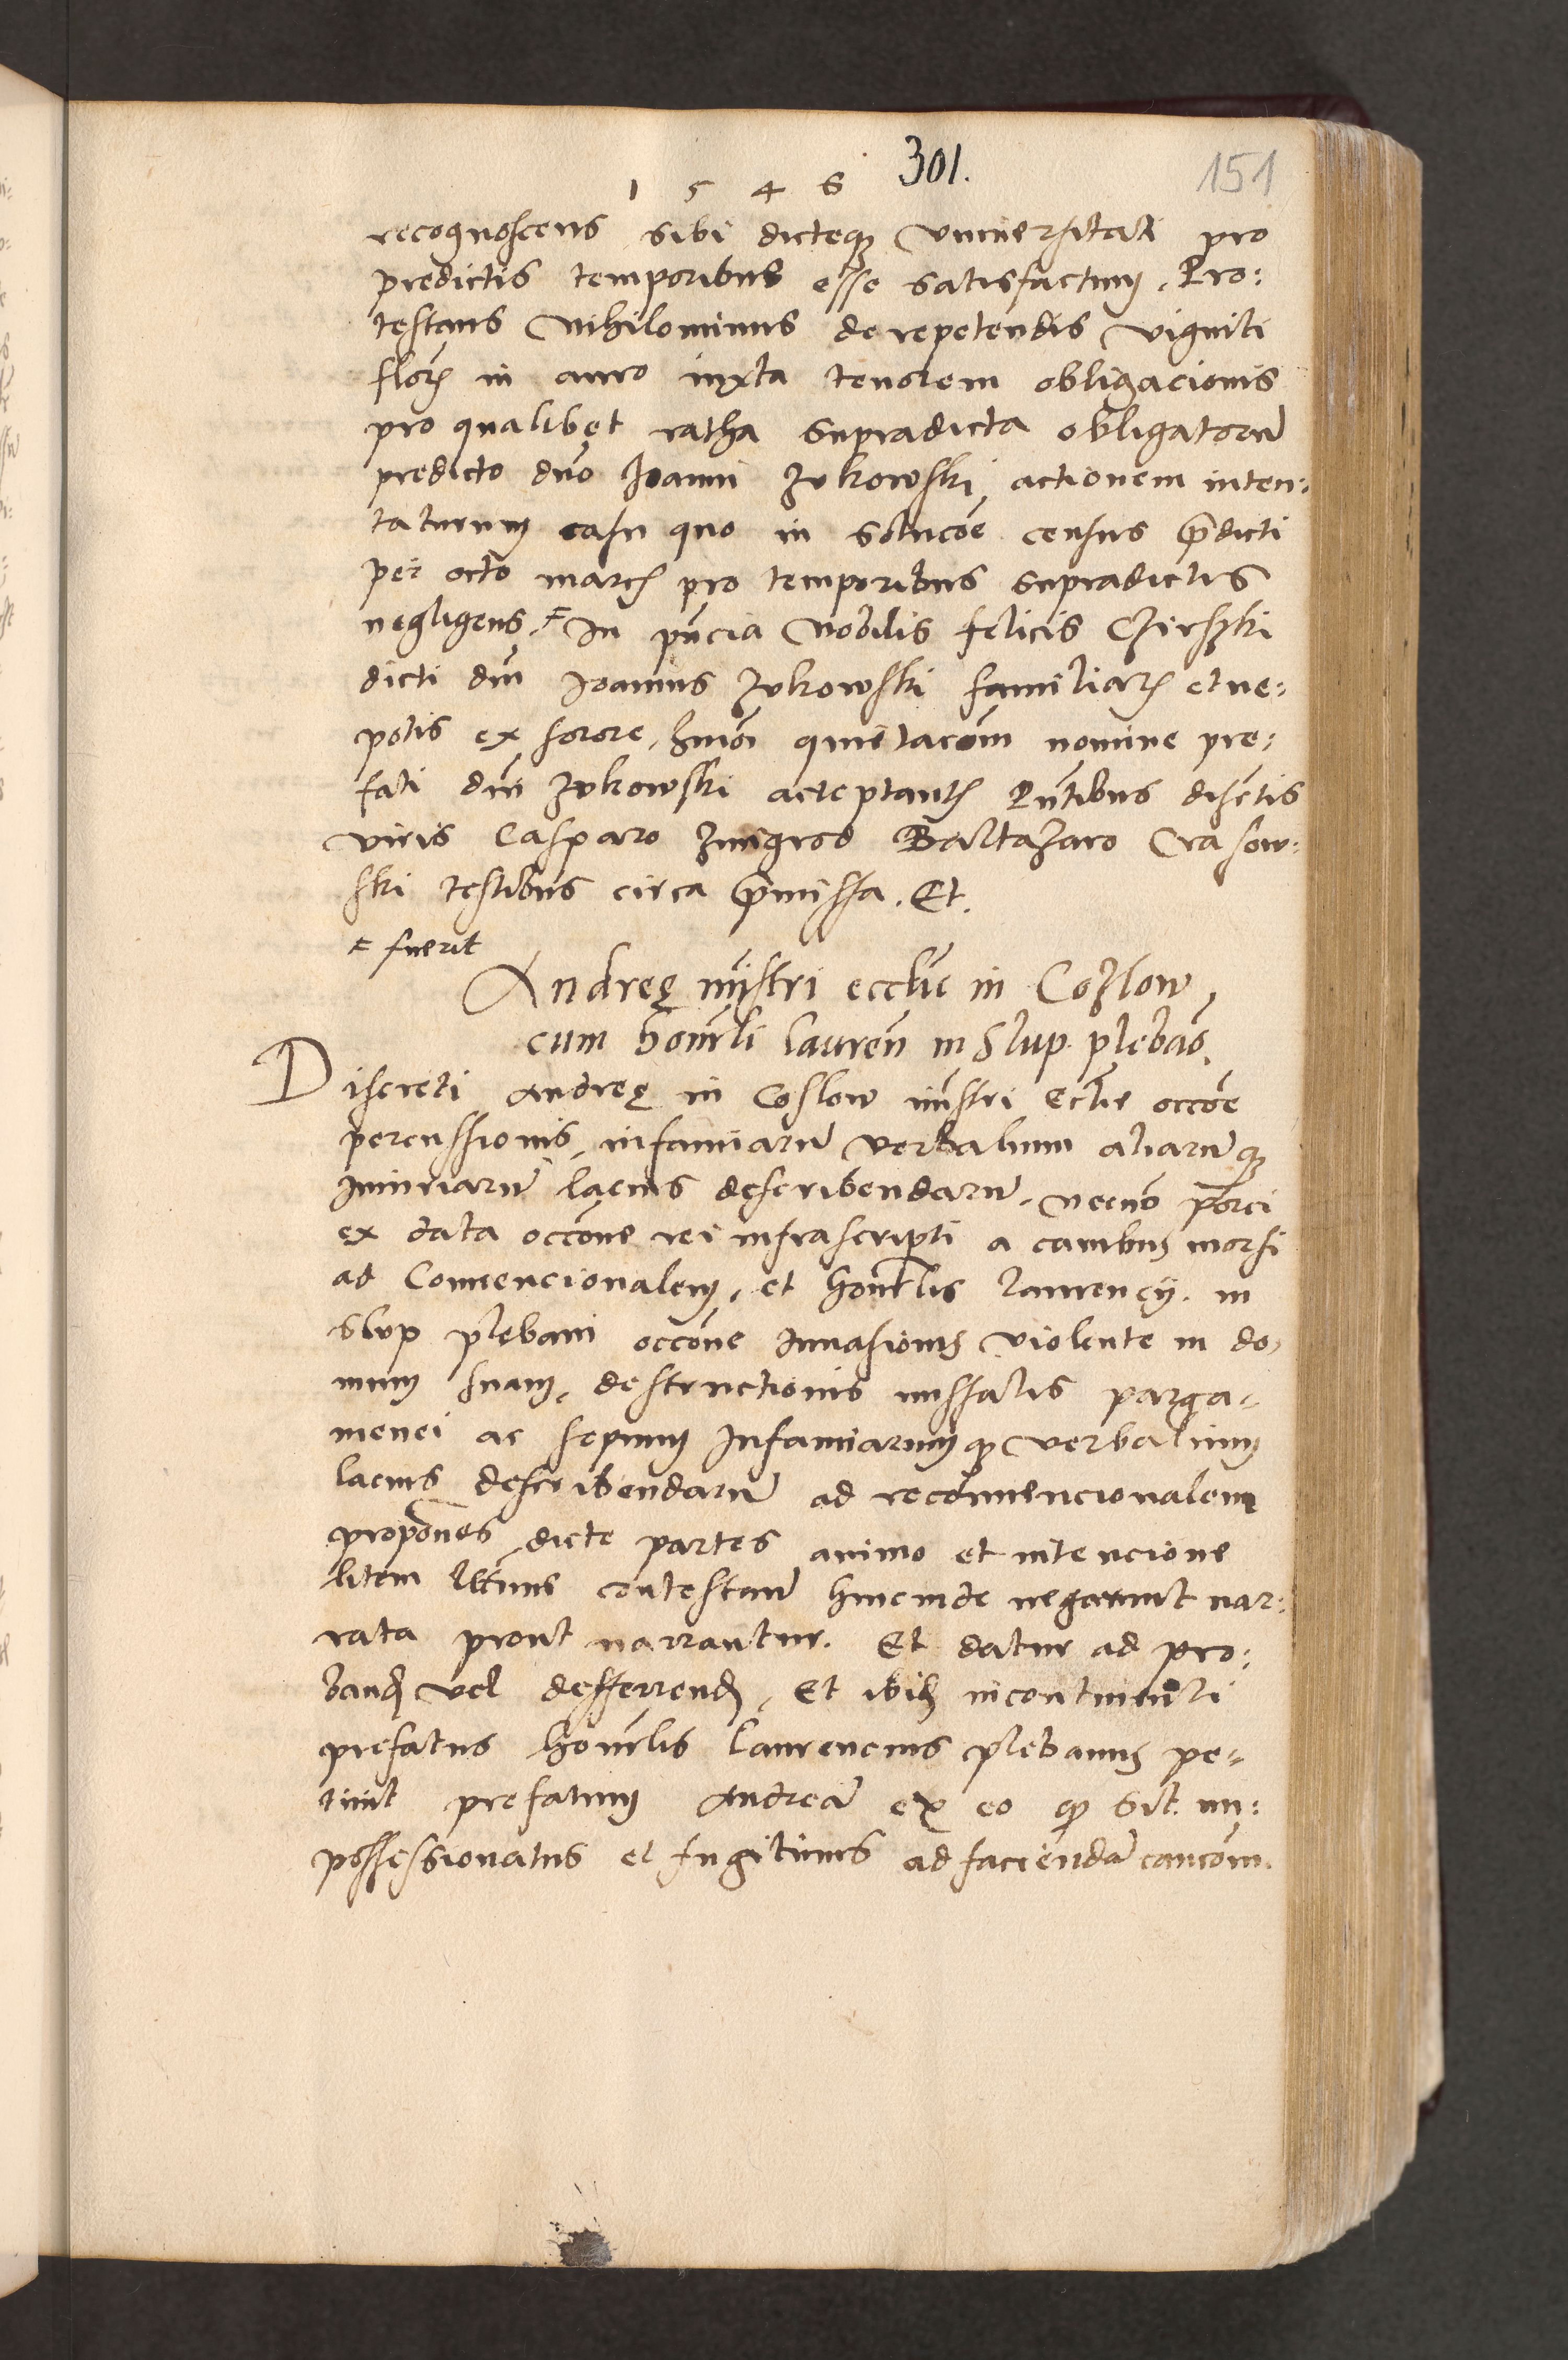 301.
151
1 5 4 6
recognoscens sibi dicteq3 Vniuersitati pro
predictis temporibus esse satisfactum, Pro:
testans Nihilominus de repetendis viginti
flor in auro iuxta tenorem obligacionis
pro qualibet ratha supradicta obligatorū
predicto dno Joanni Zukowski actionem inten:
taturum casu quo in solucōe census p̄dicti
per octo marc pro temporibus supradictis
negligens, ⌗ In pn̄cia Nobilis felicis Czirszki
dicti dni Joannis Zukowski familiar et ne:
potis ex sorore, hmōi quietacōem nomine pre:
fati dni Zukowski acceptantis Pn̄tibus discretis
viris Casparo Zmigrod Baltazaro Crasow:
ski testibus circa p̄missa. Et.
⌗ fuerit
Andreę mīstri ecclīe in Cozlow
cum honorabli Lauren in Slup plebāo.
Discreti Andreę in Coslow mīstri Eclīe occōe
percussionis, infamiarū verbalium aliarūq3
iniuriarū lacius describendarū, necnō porci
ex data occōne rei infrascripti a canibus morsi
ad Conuencionalem, et honorablis Laurencij in
Slup plebani occōne Inuasionis violente in do,
mum suam, destructionis missalis parga,
menei ac sepium Infamiarumq3 verbalium
lacius describendarū ad reconuencionalem
propōnes dicte partes animo et intencione
litem lt̄ime contestan̄ hincinde negarunt nar:
rata prout narrantur. Et datur ad pro:
band vel defferrend, Et ibid incontinenti
prefatus honorablis Laurencius plebanus pe,
tiuit prefatum Andreā ex eo q3 sit im:
possessionatus et fugitiuus ad faciendā caucōem.